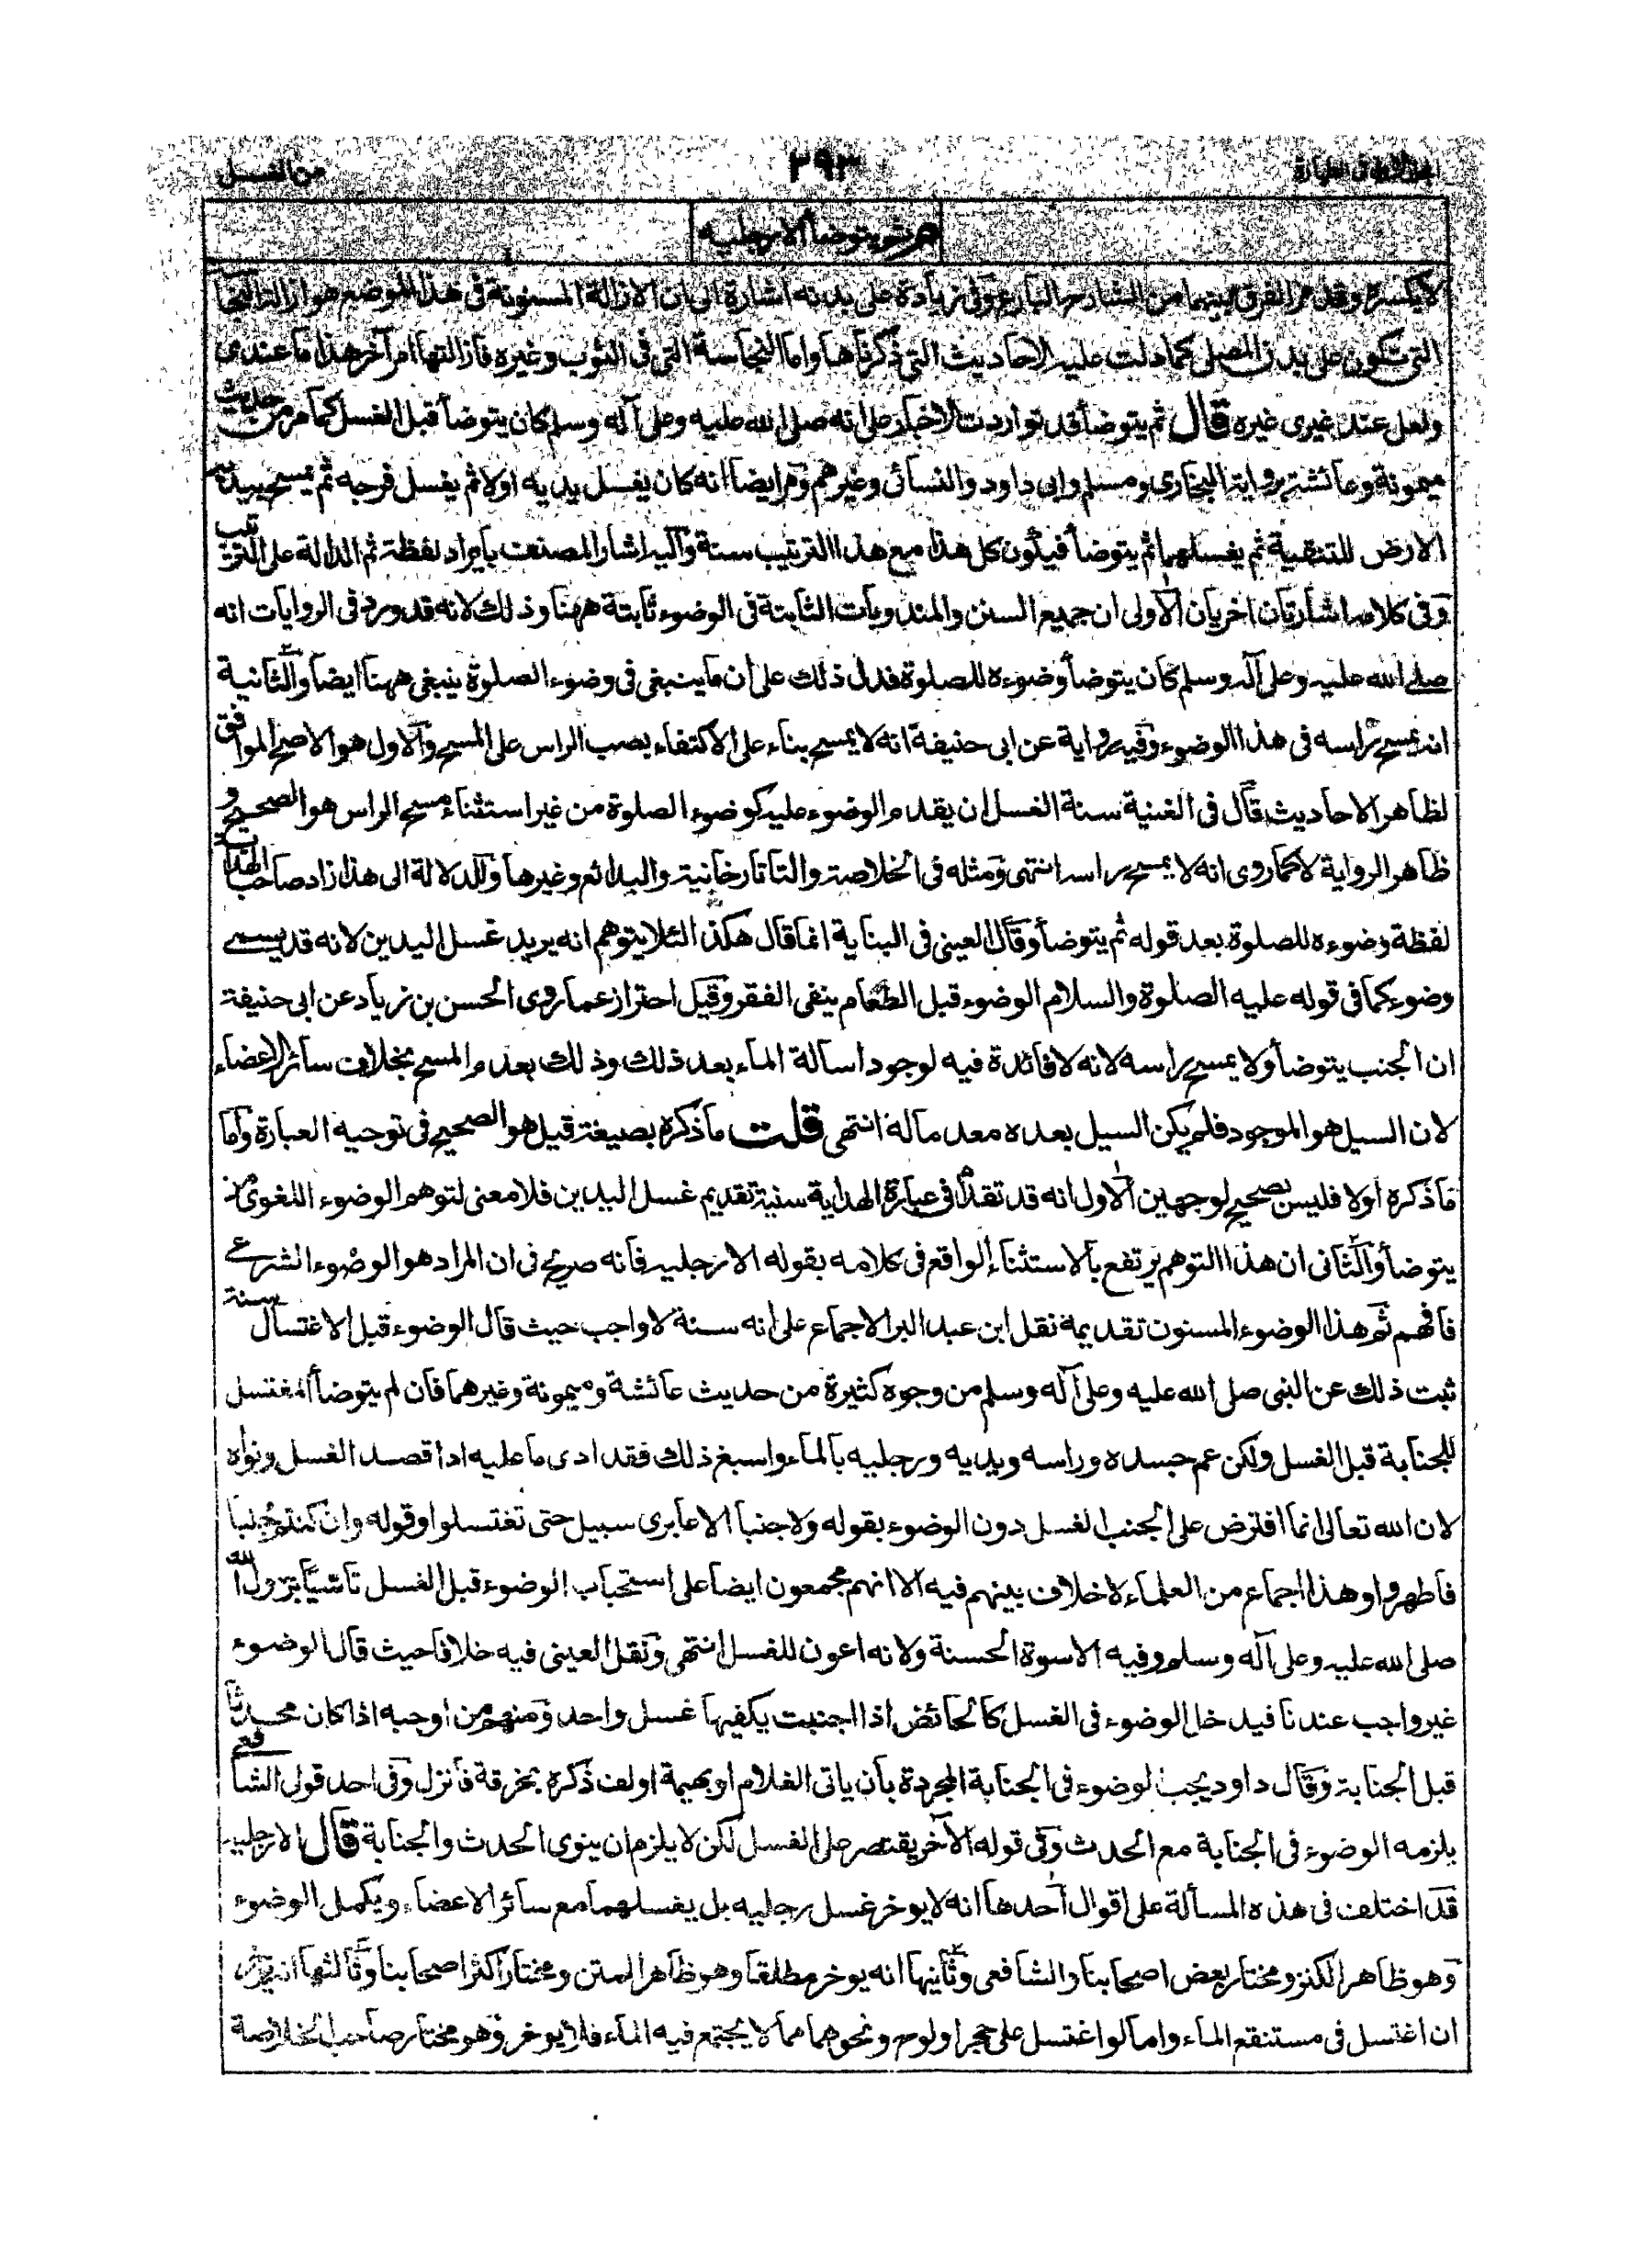 من الغسل
٣٩٣
ثم يتوضأ الا رجليه
لا يكسره وقد مر الفرق بينهما من الشارح البارع وفى زيادة على بدنه اشارة الى ان الازالة المسنونة فى هذا الموضع هو ازالة النجاسة
التى تكون على بدن المصلى كما دلت عليه الاحاديث التى ذكرناها واما النجاسة التى فى الثوب وغيره فازالتها امر آخر هذا ما عندى
ولعل عند غيرى غيره قال ثم يتوضأ قد تواردت الاخبار على انه صلى الله عليه وعلى آله وسلم كان يتوضأ قبل الغسل كما مر من حديث
ميمونة وعائشة برواية البخارى ومسلم وابى داود والنسائى وغيرهم ومر ايضا انه كان يغسل يديه اولا ثم يغسل فرجه ثم يمسح بيديه
الارض للتنقية ثم يغسلهما ثم يتوضأ فيكون كل هذا مع هذا الترتيب سنة واليه اشار المصنف بايراد لفظة ثم الدالة على الترتيب
وفى كلامه اشارتان اخريان الاولى ان جميع السنن والمندوبات الثابتة فى الوضوء ثابتة ههنا وذلك لانه قد ورد فى الروايات انه
صلى الله عليه وعلى آله وسلم كان يتوضأ وضوءه للصلوة فدل ذلك على ان ما ينبغى فى وضوء الصلوة ينبغى ههنا ايضا والثانية
انه يمسح براسه فى هذا الوضوء وفيه رواية عن ابى حنيفة انه لا يمسح بناء على الاكتفاء بصب الراس على المسح والاول هو الاصح الموافق
لظاهر الاحاديث قال فى الغنية سنة الغسل ان يقدم الوضوء عليه كوضوء الصلوة من غير استثناء مسح الراس هو الصحيح و
ظاهر الرواية لا كما روى انه لا يمسح براسه انتهى ومثله فى الخلاصة والتاتارخانية والبدائع وغيرها وللدلالة الى هذا زاد صاحب الهداية
لفظة وضوءه للصلوة بعد قوله ثم يتوضأ وقال العينى فى البناية انما قال هكذا لئلا يتوهم انه يريد غسل اليدين لانه قد يسمى
وضوء كما فى قوله عليه الصلوة والسلام الوضوء قبل الطعام ينفى الفقر وقيل احتراز عما روى الحسن بن زياد عن ابى حنيفة
ان الجنب يتوضأ ولا يمسح براسه لانه لا فائدة فيه لوجود اسالة الماء بعد ذلك وذلك يعدم المسح بخلاف سائر الاعضاء
لان السيل هو الموجود فلم يكن السيل بعده معدما له انتهى قلت ما ذكره بصيغة قيل هو الصحيح فى توجيه العبارة واما
ما ذكره اولا فليس بصحيح لوجهين الاول انه قد تقدم فى عبارة الهداية سنية تقديم غسل اليدين فلا معنى لتوهم الوضوء اللغوى من
يتوضأ والثانى ان هذا التوهم يرتفع بالاستثناء الواقع فى كلامه بقوله الا رجليه فانه صريح فى ان المراد هو الوضوء الشرعى
فافهم ثم هذا الوضوء المسنون تقديمه نقل ابن عبد البر الاجماع على انه سنة لا واجب حيث قال الوضوء قبل الاغتسال سنة
ثبت ذلك عن النبى صلى الله عليه وعلى آله وسلم من وجوه كثيرة من حديث عائشة وميمونة وغيرهما فان لم يتوضأ المغتسل
للجنابة قبل الغسل ولكن عم جسده وراسه ويديه ورجليه بالماء واسبغ ذلك فقد ادى ما عليه اذا قصد الغسل ونواه
لان الله تعالى انما افترض على الجنب الغسل دون الوضوء بقوله ولا جنبا الا عابرى سبيل حتى تغتسلوا وقوله وان كنتم جنبا
فاطهروا وهذا اجماع من العلماء لا خلاف بينهم فيه الا انهم مجمعون ايضا على استحباب الوضوء قبل الغسل تاسيا برسول الله
صلى الله عليه وعلى آله وسلم وفيه الاسوة الحسنة ولانه اعون للغسل انتهى ونقل العينى فيه خلافا حيث قال الوضوء
غير واجب عندنا فيدخل الوضوء فى الغسل كالحائض اذا اجنبت يكفيها غسل واحد ومنهم من اوجبه اذا كان محدثا
قبل الجنابة وقال داود يجب الوضوء فى الجنابة المجردة بان ياتى الغلام او بهيمة او لف ذكره بخرقة فانزل وفى احد قولى الشافعى
يلزمه الوضوء فى الجنابة مع الحدث وفى قوله الآخر يقتصر على الغسل لكن لا يلزم ان ينوى الحدث والجنابة قال الا رجليه
قد اختلف فى هذه المسألة على اقوال احدها انه لا يوخر غسل رجليه بل يغسلهما مع سائر الاعضاء ويكمل الوضوء
وهو ظاهر الكنز ومختار بعض اصحابنا والشافعى وثانيها انه يوخر مطلقا وهو ظاهر المتن ومختار اكثر اصحابنا وثالثها انه يوخر
ان اغتسل فى مستنقع الماء واما لو اغتسل على حجر او لوح ونحوهما مما لا يجتمع فيه الماء فلا يوخر وهو مختار صاحب الخلاصة